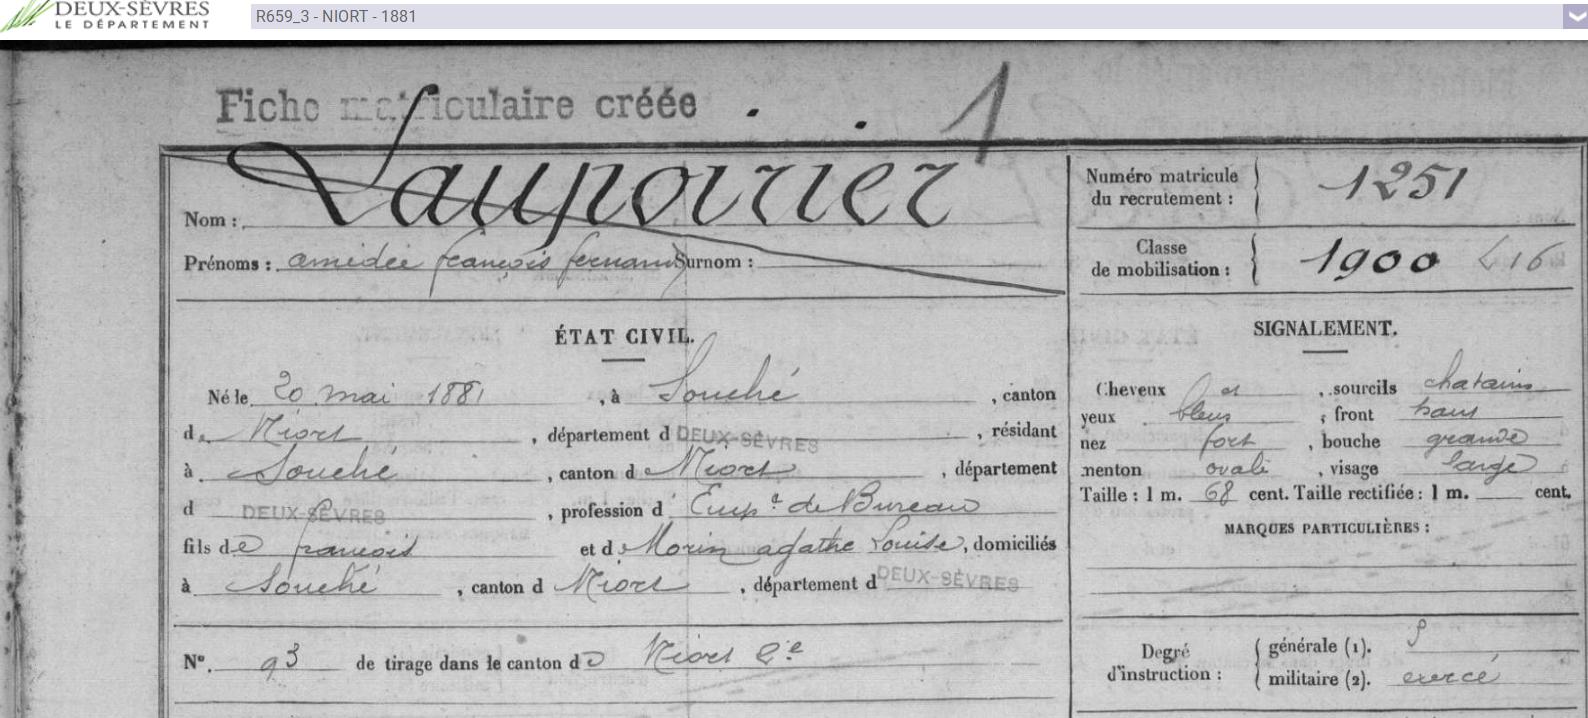 DEUX-SÈVRES
LE DÉPARTEMENT
R659_3 - NIORT - 1881
Fiche matriculaire créée
1
Nom : Laupoirier
Prénoms : amédée françois fernand Surnom :
Numéro matricule du recrutement : 1251
Classe de mobilisation : 1900 L 16
ÉTAT CIVIL.
Né le 20 mai 1881, à Souché, canton
de Niort, département d DEUX-SÈVRES, résidant
à Souché, canton de Niort, département
d DEUX-SÈVRES, profession d' Emp.é de Bureau
fils de françois et de Morin agathe Louise, domiciliés
à Souché, canton d Niort, département d DEUX-SÈVRES
N° 93 de tirage dans le canton de Niort 2e
SIGNALEMENT.
Cheveux et, sourcils chatains
yeux bleus, front haut
nez fort, bouche grande
menton ovale, visage large
Taille : 1 m. 68 cent. Taille rectifiée : 1 m. cent.
MARQUES PARTICULIÈRES :
Degré d'instruction :
générale (1).
militaire (2). exercé